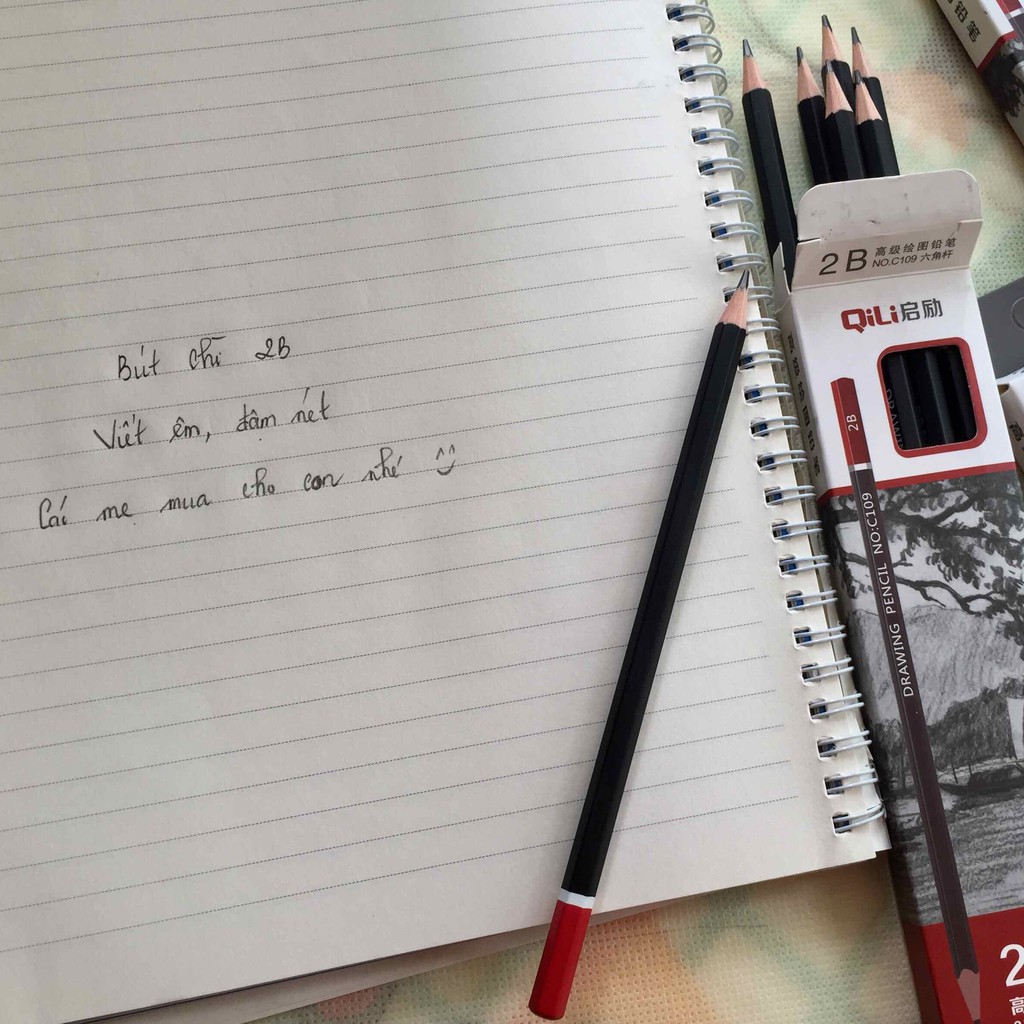 Bút chì 2B
Viết êm, đậm nét
Các mẹ mua cho con nhé ^^
2B 高级绘图铅笔
NO.C109 六角杆
QiLi启励
2B
DRAWING PENCIL NO:C109
铅笔